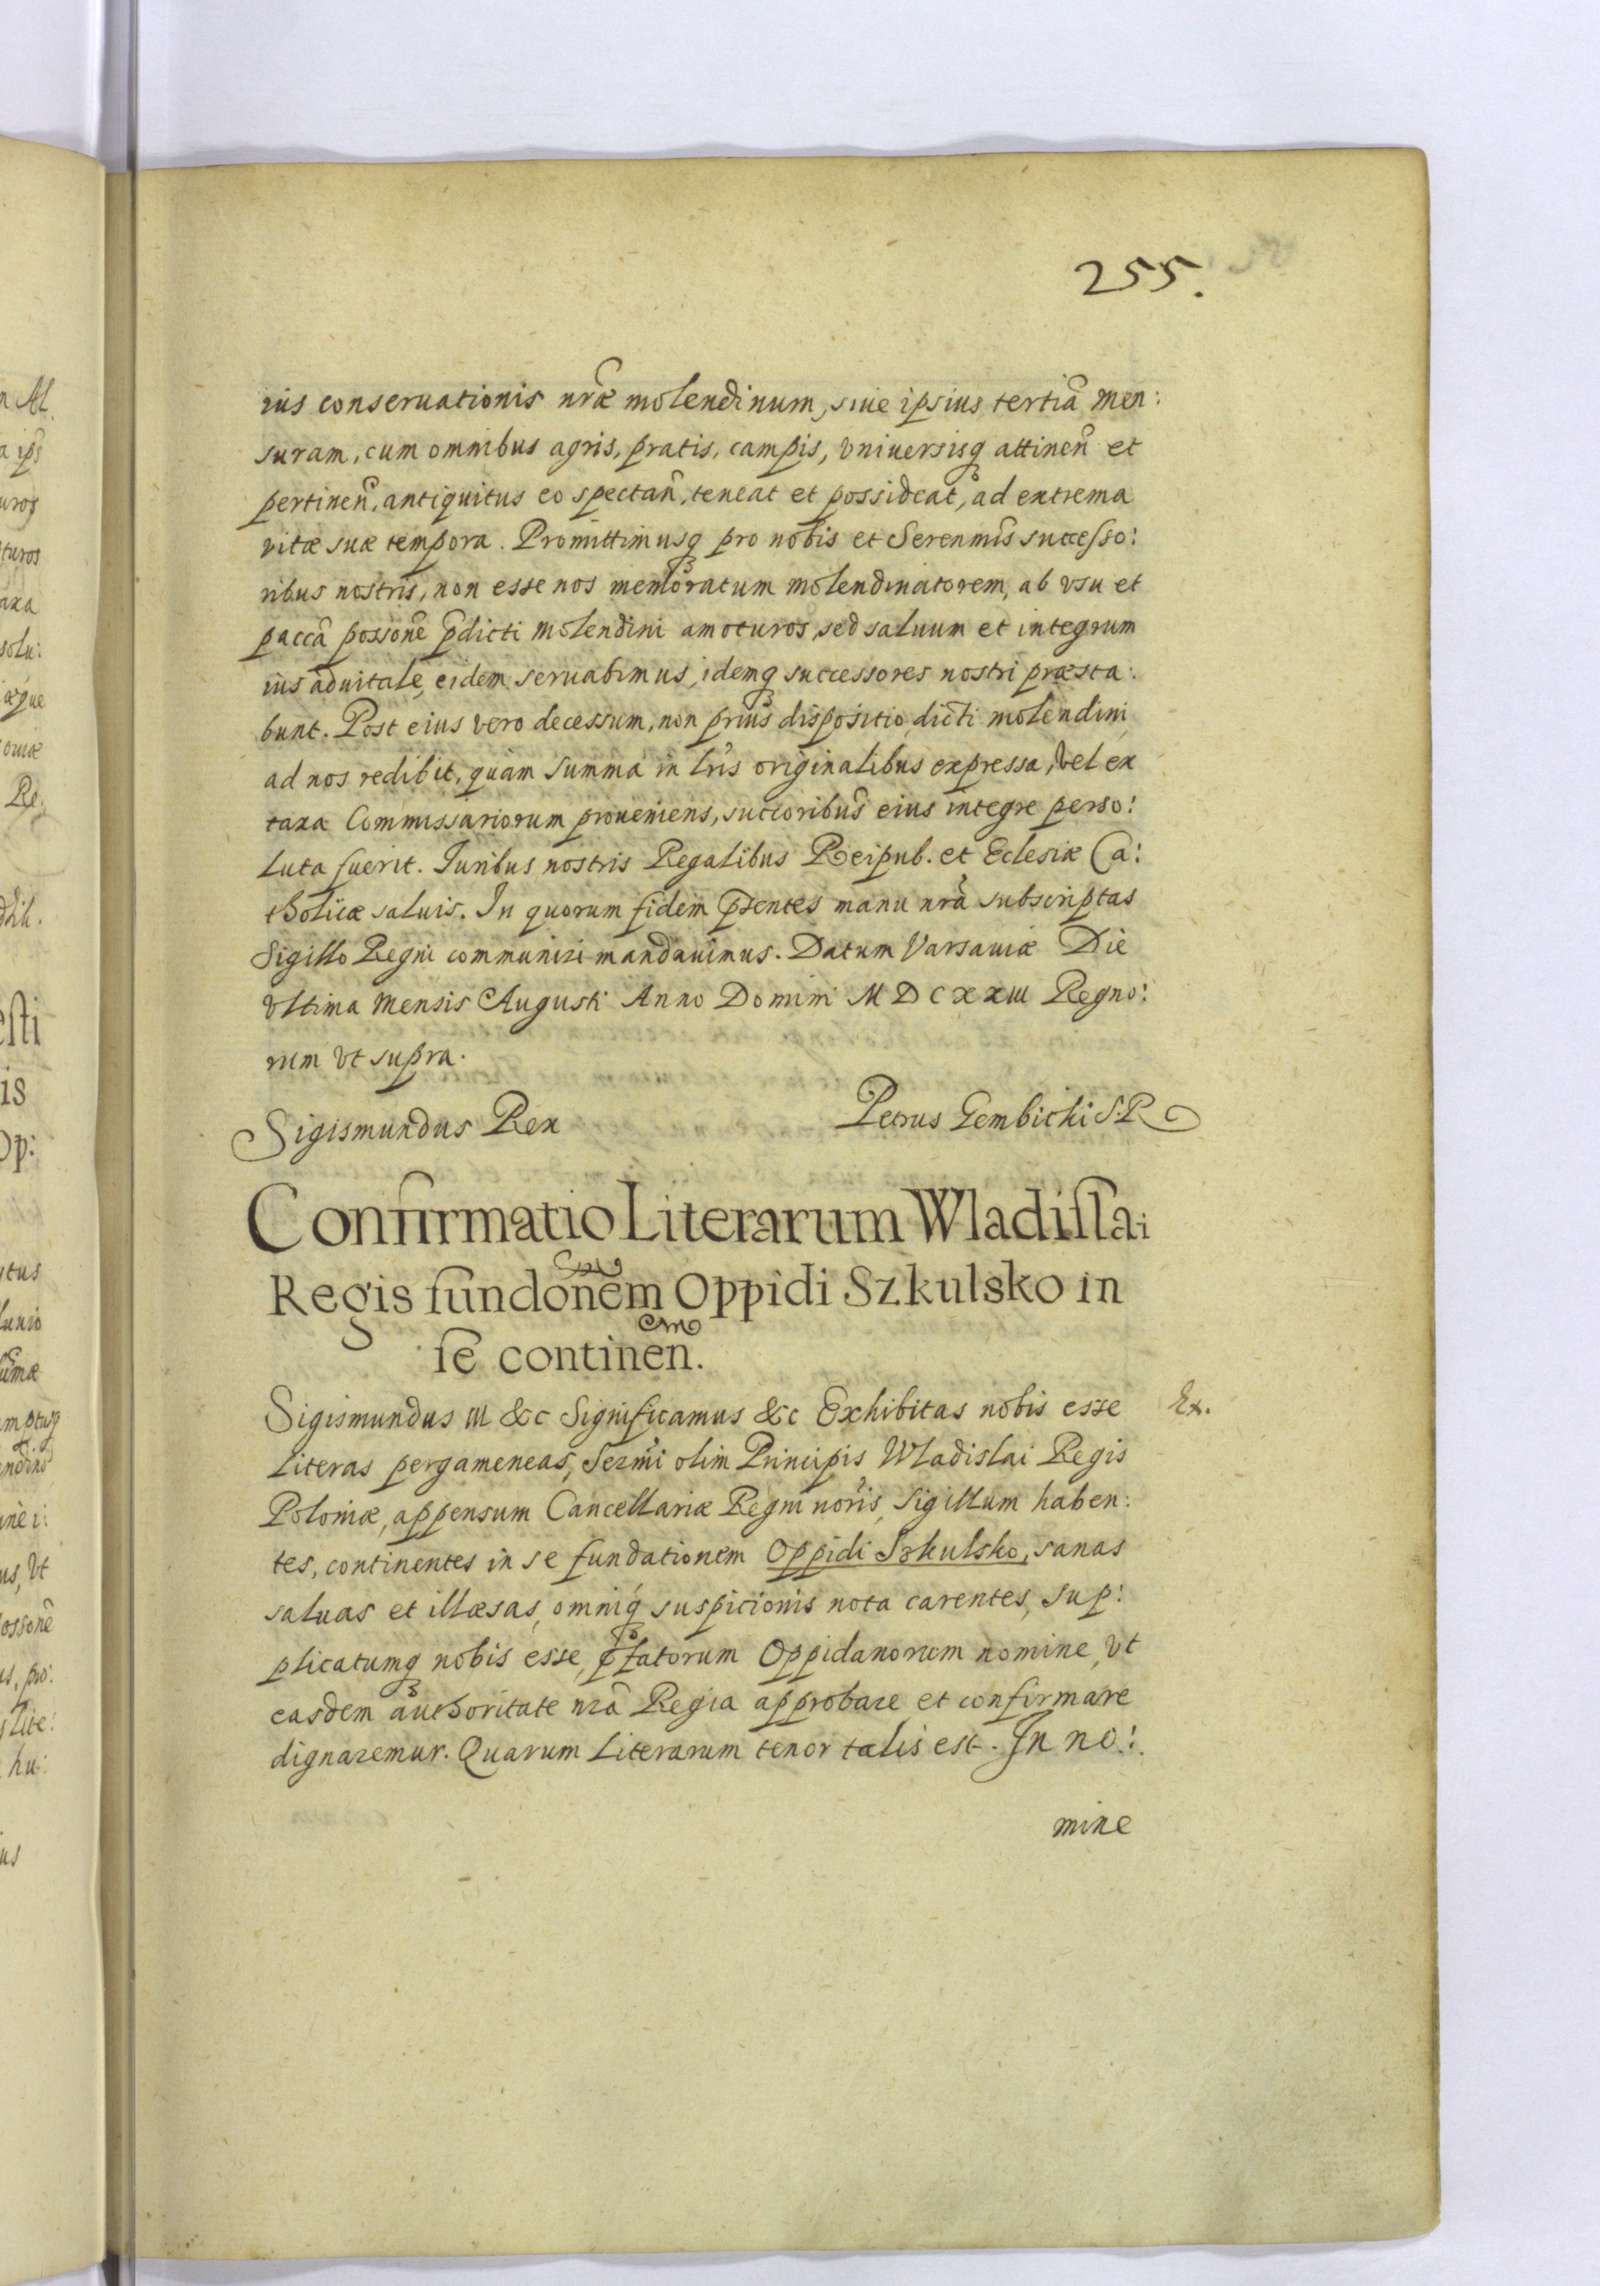 255.
ius conseruationis nr̃æ molendinum, siue ipsius tertiã men:
suram, cum omnibus agris, pratis, campis, vniuersisq attineñ et
pertineñ, antiquitus eo spectañ, teneat et possideat, ad extrema
vitæ suæ tempora. Promittimusq pro nobis et Serenmis̃ successo:
ribus nostris, non esse nos memoratum molendinatorem, ab vsu et
paccã possonẽ p̃dicti molendini amoturos, sed saluum et integrum
ius aduitale, eidem seruabimus, idemq successores nostri præsta:
bunt. Post eius vero decessum, non prius dispositio, dicti molendini
ad nos redibit, quàm summa in lr̃is originalibus expressa, vel ex
taxa Commissariorum proueniens, succoribus̃ eius integre perso:
luta fuerit. Iuribus nostris Regalibus Reipub. et Eclesiæ Ca:
tholicæ saluis. In quorum fidem p̃sentes manu nrã subscriptas
Sigillo Regni communiri mandauimus. Datum Varsauiæ Die
vltima Mensis Augusti Anno Domini MDCXXIII Regno:
rum vt supra.
Sigismundus Rex Petrus Gembicki S.P.
Confirmatio Literarum Wladislai
Regis fundonẽm Oppidi Szkulsko in
se contineñ.
Sigismundus III &c Significamus &c Exhibitas nobis esse Ex.
literas pergameneas, Serm̃i olim Principis Wladislai Regis
Poloniæ, appensum Cancellariæ Regni nor̃is, sigillum haben:
tes, continentes in se fundationem Oppidi Szkulsko, sanas
saluas et illæsas, omniq́ suspicionis nota carentes, sup:
plicatumq nobis esse, p̃fatorum Oppidanorum nomine, vt
easdem authoritate nrã Regia approbare et confirmare
dignaremur. Quarum Literarum tenor talis est. In no:
mine